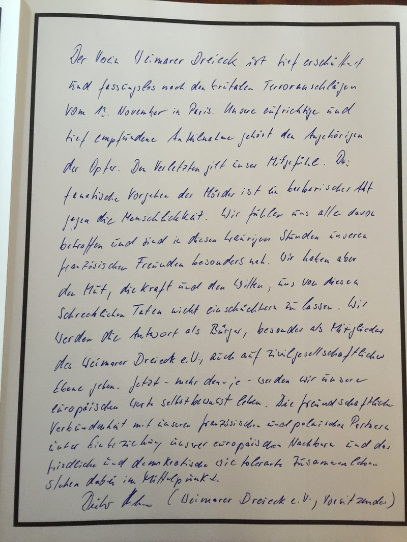 Der Verein Weimarer Dreieck ist tief erschüttert
und fassungslos nach den brutalen Terroranschlägen
vom 13. November in Paris. Unsere aufrichtige und
tief empfundene Anteilnahme gehört den Angehörigen
der Opfer. Den Verletzten gilt unser Mitgefühl. Das
fanatische Vorgehen der Mörder ist ein barbarischer Akt
gegen die Menschlichkeit. Wir fühlen uns alle davon
betroffen und sind in diesen traurigen Stunden unseren
französischen Freunden besonders nah. Wir haben aber
den Mut, die Kraft und den Willen, uns von diesen
schrecklichen Taten nicht einschüchtern zu lassen. Wir
werden die Antwort als Bürger, besonders als Mitglieder
des Weimarer Dreieck e.V., auch auf zivilgesellschaftlicher
Ebene geben. Jetzt - mehr denn je - werden wir unsere
europäischen Werte selbstbewusst leben. Die freundschaftliche
Verbundenheit mit unseren französischen und polnischen Partnern
unter Einbeziehung unserer europäischen Nachbarn und das
friedliche und demokratische wie tolerante Zusammenleben
stehen dabei im Mittelpunkt.
Dieter (Weimarer Dreieck e.V., Vorsitzender)